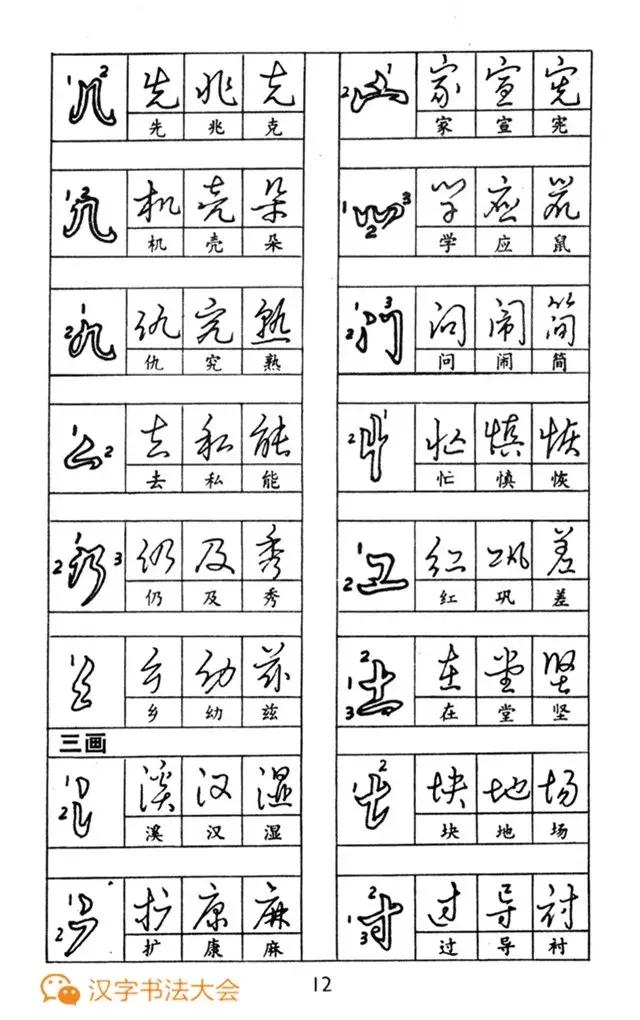 先 兆 克
先 兆 克
机 壳 朵
机 壳 朵
仇 究 熟
仇 究 熟
去 私 能
去 私 能
仍 及 秀
仍 及 秀
乡 幼 兹
乡 幼 兹
三画
溪 汉 湿
溪 汉 湿
扩 康 麻
扩 康 麻
家 宣 宪
家 宣 宪
学 应 鼠
学 应 鼠
问 闹 简
问 闹 简
忙 慎 恢
忙 慎 恢
红 巩 差
红 巩 差
在 堂 坚
在 堂 坚
块 地 场
块 地 场
过 导 衬
过 导 衬
12
汉字书法大会